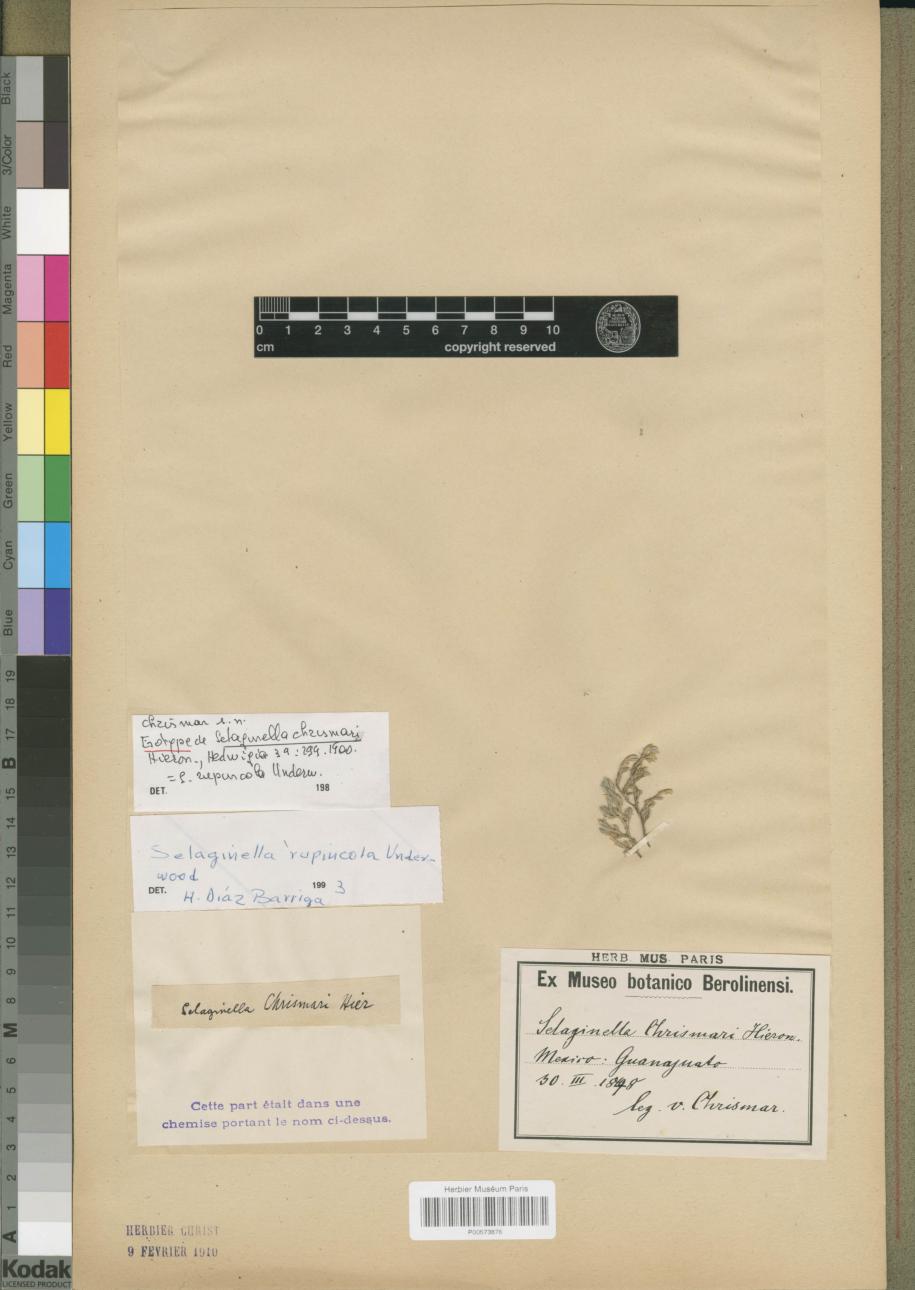 0 1 2 3 4 5 6 7 8 9 10
cm copyright reserved
Black
3/Color
White
Magenta
Red
Yellow
Green
Cyan
Blue
19
18
17
B
15
14
13
12
11
10
9
8
M
6
5
4
3
2
1
A
Kodak
LICENSED PRODUCT
Chrismar s.n.
Isotype de Selaginella chrismari
Hieron., Hedwigia 39:299.1900.
= S. rupincola Underw.
DET. 198
Selaginella rupincola Under-
wood
DET. 199 3
H. Díaz Barriga
Selaginella Chrismari Hier
Cette part était dans une
chemise portant le nom ci-dessus.
HERB MUS PARIS
Ex Museo botanico Berolinensi.
Selaginella Chrismari Hieron.
Mexico: Guanajuato
30. III.
leg. v. Chrismar.
Herbier Muséum Paris
HERBIER CHRIST
9 FÉVRIER 1910